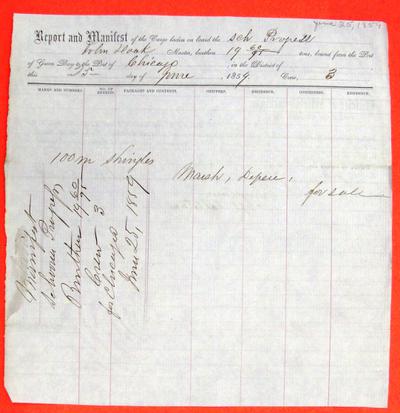 June 25, 1859
Report and Manifest of the Cargo laden on board the Sch Propell
John Doak Master, burthen 19 60/95 tons, bound from the Port
of Green Bay to the Port of Chicago, in the District of
this 25 day of June 1859 Crew, 3
MARKS AND NUMBERS. NO. OF ENTRIES. PACKAGES AND CONTENTS. SHIPPER. RESIDENCE. CONSIGNEE. RESIDENCE.
100 m Shingles Marsh, Depere, for sale
Manifest
Schooner Propell
Burthen 19 60/95
Crew 3
for Chicago
June 25, 1859